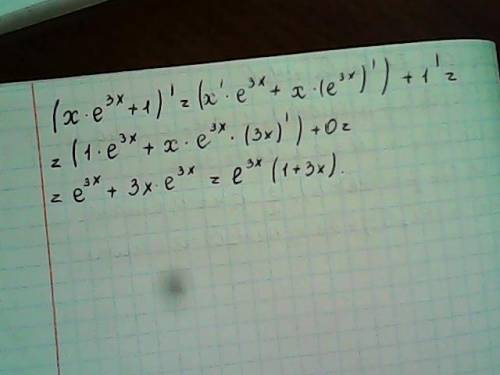 (x·e^{3x}+1)' = (x'·e^{3x} + x·(e^{3x})') + 1' =
= (1·e^{3x} + x·e^{3x}·(3x)') + 0 =
= e^{3x} + 3x·e^{3x} = e^{3x}(1+3x).